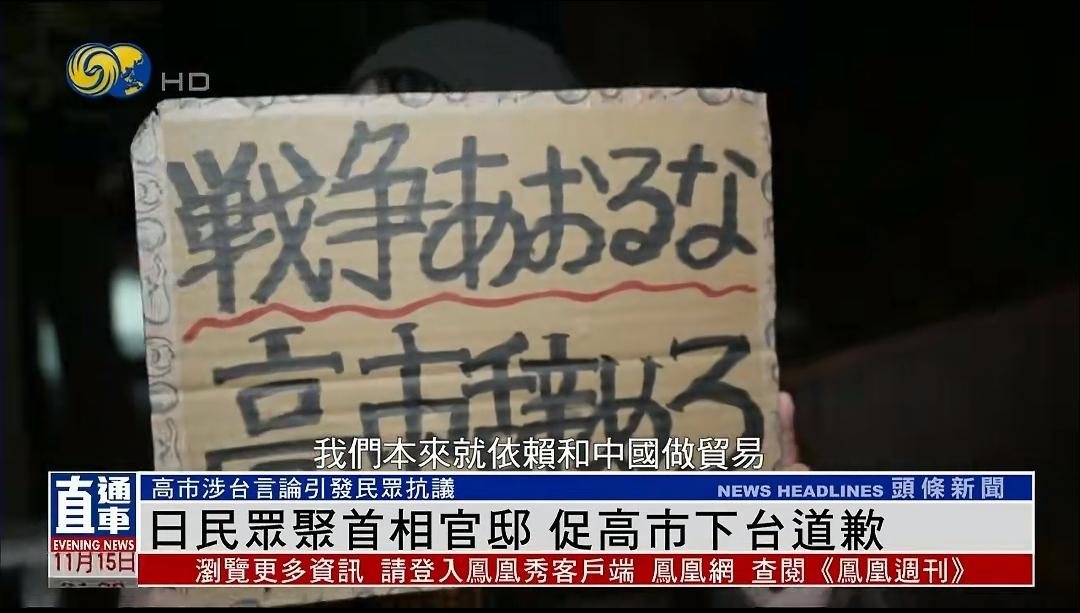 HD
戦争あおるな
高市辞めろ
我們本來就依賴和中國做貿易
直通車
高市涉台言論引發民眾抗議
NEWS HEADLINES 頭條新聞
日民眾聚首相官邸 促高市下台道歉
EVENING NEWS
11月15日
瀏覽更多資訊 請登入鳳凰秀客戶端 鳳凰網 查閱《鳳凰週刊》